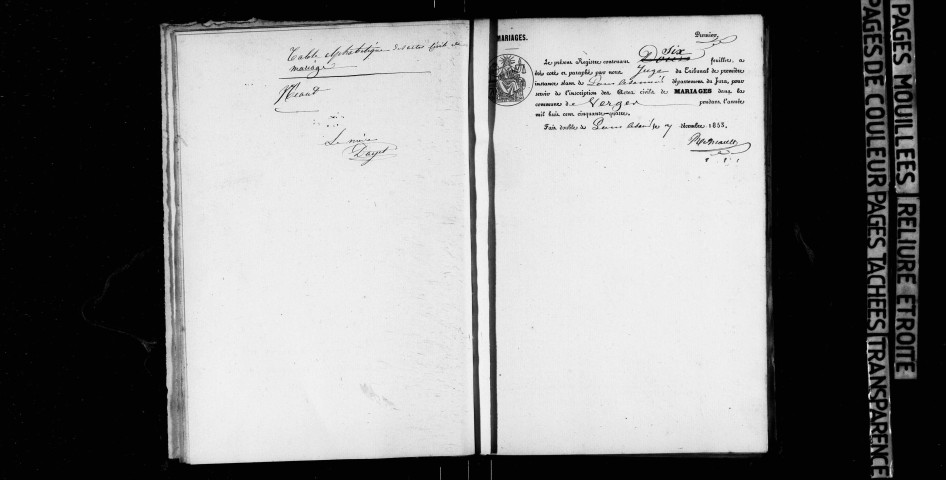 Table alphabétique des actes civils de
mariage
Néant
Le maire
Dayet
MARIAGES.
Premier,
Six
Le présent Registre contenant feuilles, a
été coté et paraphé par nous Juge du Tribunal de première
instance séant de département du Jura, pour
servir de l'inscription des Actes civils de MARIAGES dans la
commune de Verges pendant l'année
mil huit cent cinquante-quatre.
Fait double à le 7 décembre 1853.
PAGES MOUILLEES RELIURE ETROITE
PAGES DE COULEUR PAGES TACHEES TRANSPARENCE